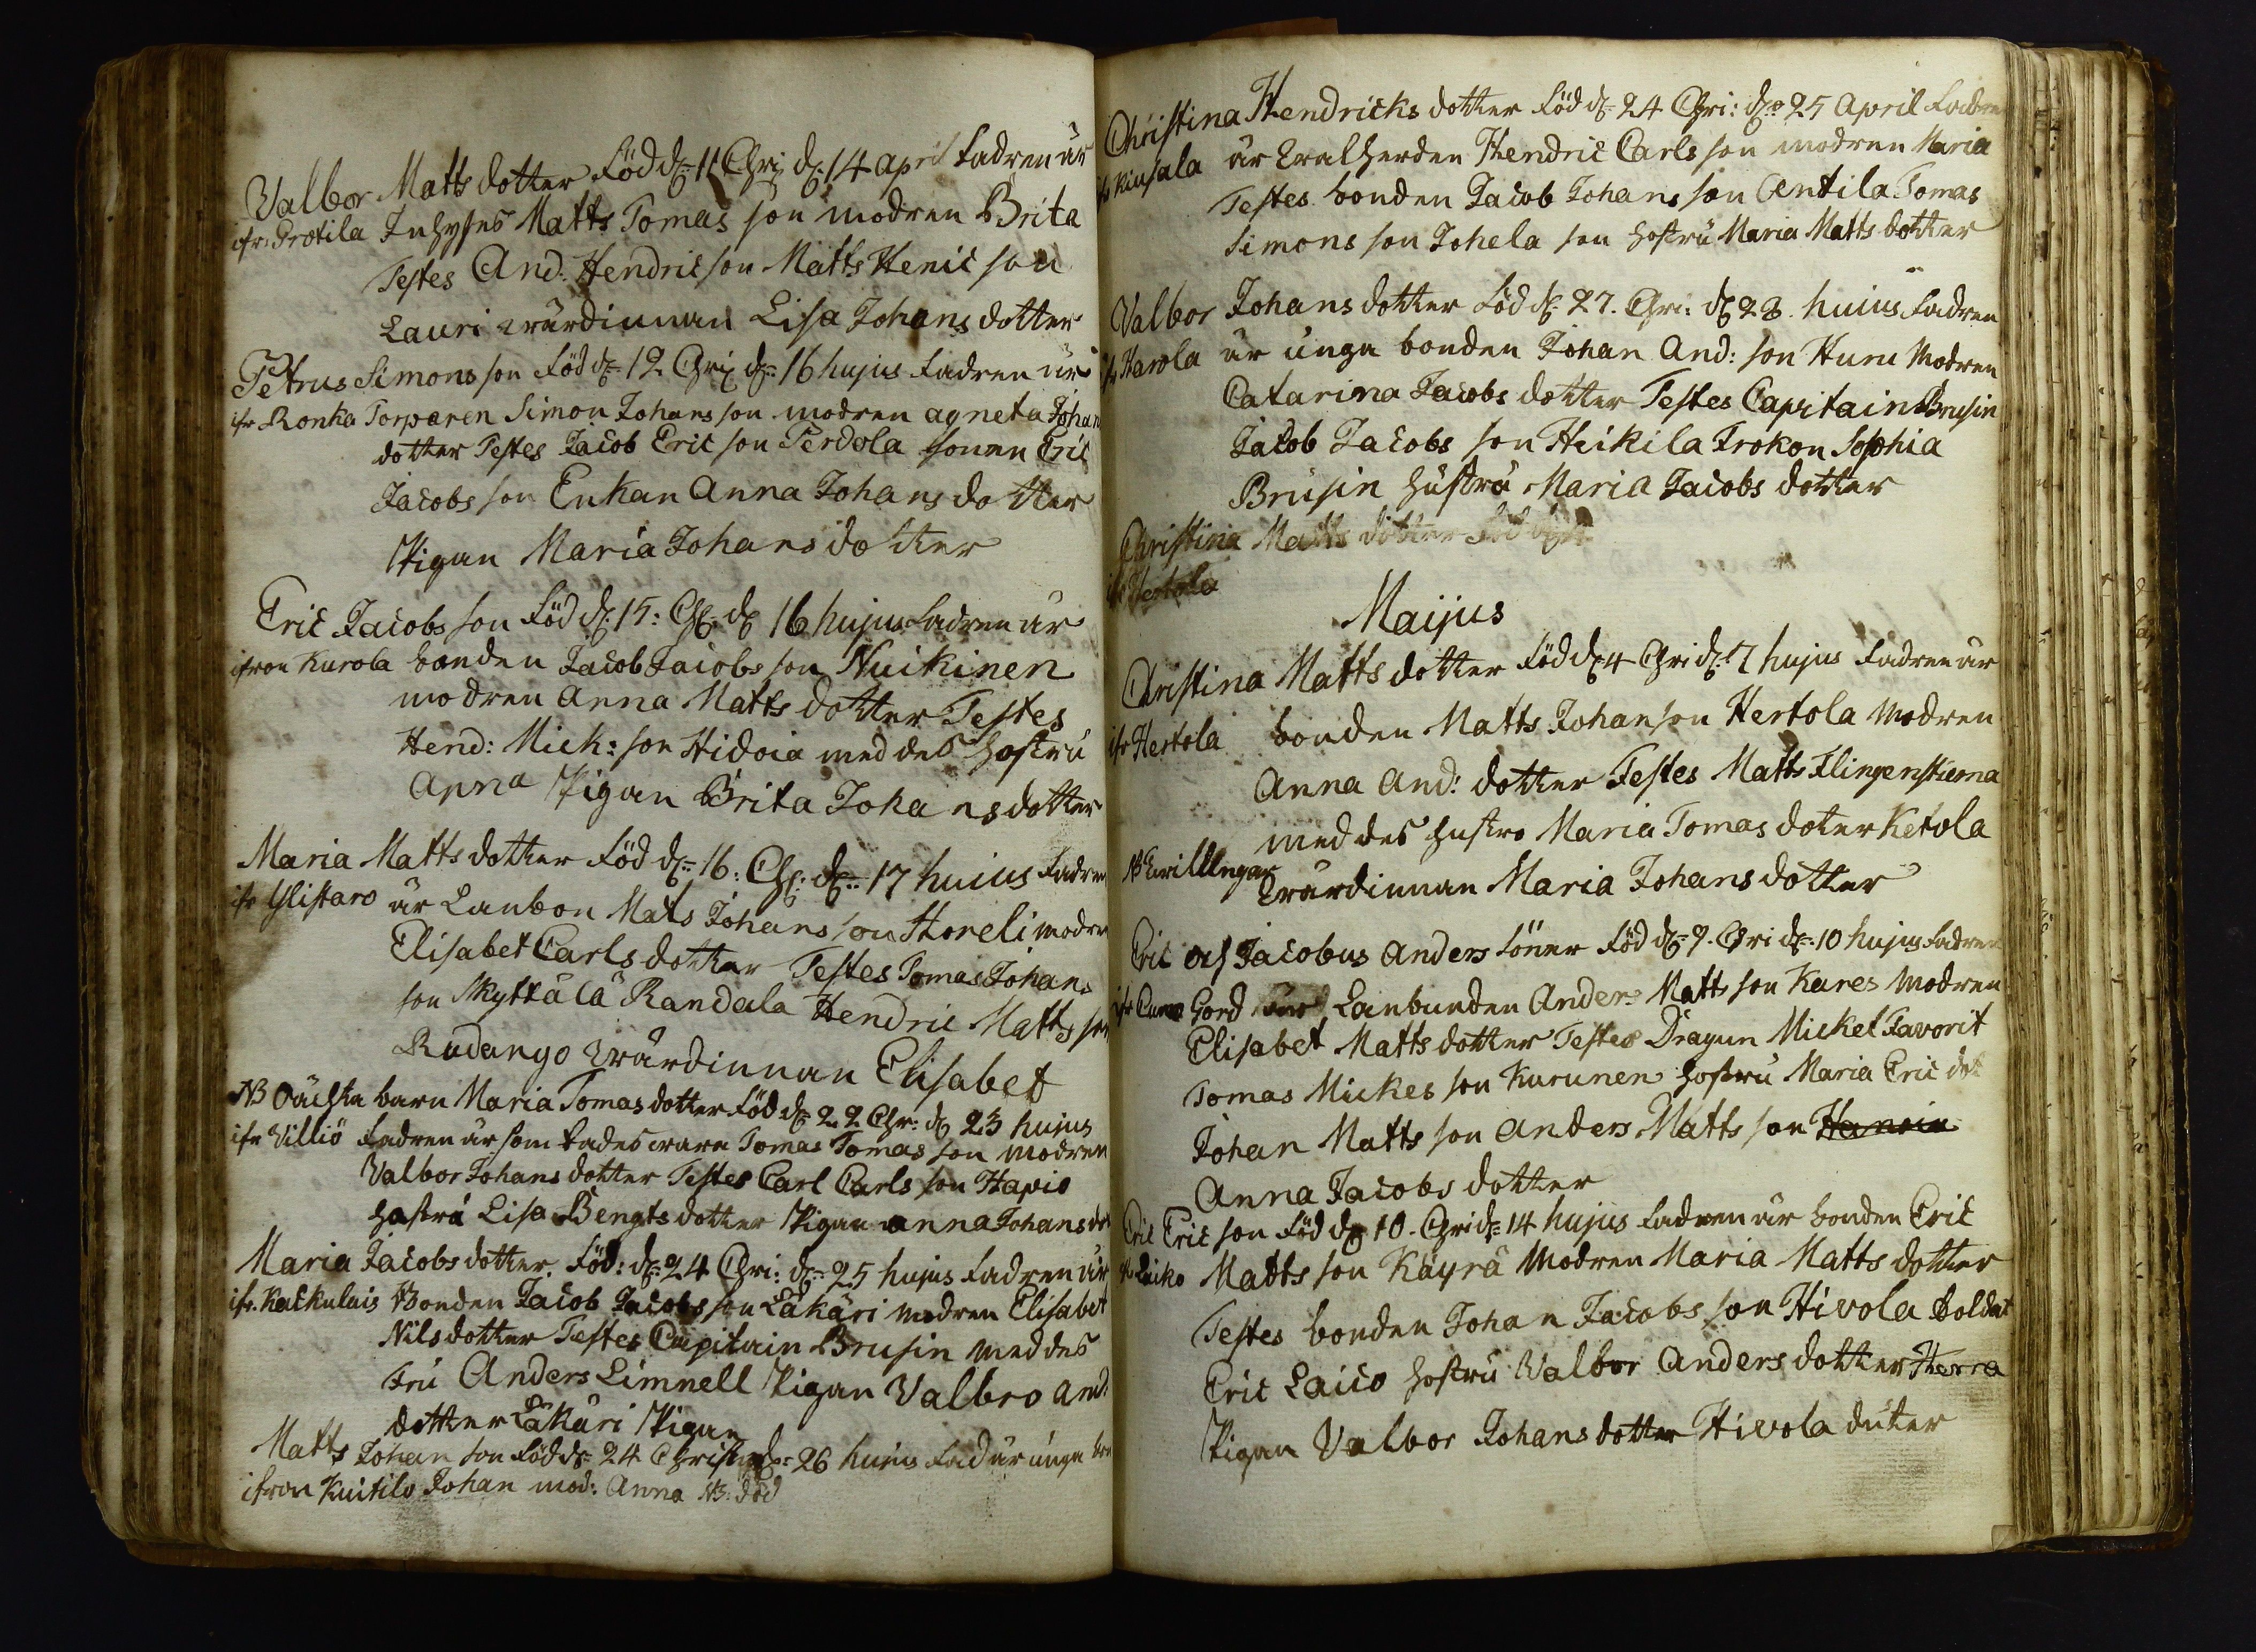 Valbor Matts dotter Född d: 11 Chri d: 14 april Fadren är
ifr: Protila Inhyses Matts Tomas son modren Brita
Testes And: Hendric son Matts Henic son
Lauri wärdinnan Lisa Johans dotter
Petrus Simons son Född d: 12 Chri d: 16 hujus Fadren är
ifr Ronka Torparen Simon Johans son modren agneta Johans
dotter Testes Jacob Eric son Perdola sonen Eric
Jacobs son Enkan Anna Johans dotter
Pigan Maria Johans dotter
Eric Jacobs son Född d: 15: Ch: d: 16 hujus Fadren är
ifron Kurola bonden Jacob Jacobs son Nuikinen
modren Anna Matts dotter Testes
Hend: Mich: son Hidoia med des hostru
Anna Pigan Brita Johansdotter
Maria Matts dotter Född d: 16: Ch: d: 17 huius Fadren
ifr Ylistaro är Lanbon Mats Johans son Storeli modren
Elisabet Carls dotter Testes Tomas Johans
son Skyttälä Randala Hendric Matts son
Rudango wärdinnan Elisabet
NB Oächta barn Maria Tomas dotter Född d: 22 Chr: d: 23 hujus
ifr Villiö Fadren är som sades wara Tomas Tomas son modren
Valbor Johans dotter Testes Carl Carls son Hapio
hostru Lisa Bengts dotter Pigan anna Johans dot
Maria Jacobs dotter. Föd: d: 24 Chri: d: 25 hujus Fadren är
ifr. Kackulais Bonden Jacob Jacobs son Läkäri modren Elisabet
Nils dotter Testes Capitain Brusin med des
Fru Anders Limnell Pigan Valbro And:
dotter Läkäri Pigan
Matts Johan son Född d: 24 Christ d: 26 huius Fad är unga bon
ifron Kuitilo Johan mod: Anna NB: död
Christina Hendricks dotter Föd d: 24 Chri: d: 25 April Fadren
ifr Kiusala är Walherden Hendric Carls son modren Maria
Testes bonden Jacob Johans son Antila Tomas
Simons son Johela son hostru Maria Matts dotter
Valbor Johans dotter Föd d: 27. Chri: d: 28. huius Fadren
ifr Harola är unga bonden Johan And: son Huru Modren
Catarina Jacobs dotter Testes Capitain Brusin
Jacob Jacobs son Heikila Frokon Sophia
Brusin hustru Maria Jacobs dotter
Christina Matts dotter Föd
ifr Hertola
Maijus
Christina Matts dotter Född d: 4 Chri d: 7 hujus Fadren är
ifr Hertola bonden Matts Johanson Hertola Modren
Anna And: dotter Testes Matts Flingenstierna
med des hustro Maria Tomas doter Ketola
NB twillingar wärdinnan Maria Johans dotter
Eric och Jacobus Anders söner Föd d: 9. Chri d: 10 hujus Fadren
ifr Cumo Gord Lanbunden Anders Matts son Kares Modren
Elisabet Matts dotter Testes Dragun Mickel Favorit
Tomas Mickes son Kurunen hostru Maria Eric dot
Johan Matts son Anders Matts son Hanoin
Anna Jacobs dotter
Eric Eric son Föd d: 10. Chri d: 14 hujus Fadren är bonden Eric
ifr Laiko Matts son Käyrä Modren Maria Matts dotter
Testes bonden Johan Jacobs son Hivola Soldat
Eric Laico hostru Valbor Anders dotter Herra
Pigan Valbor Johans dotter Hivola duter